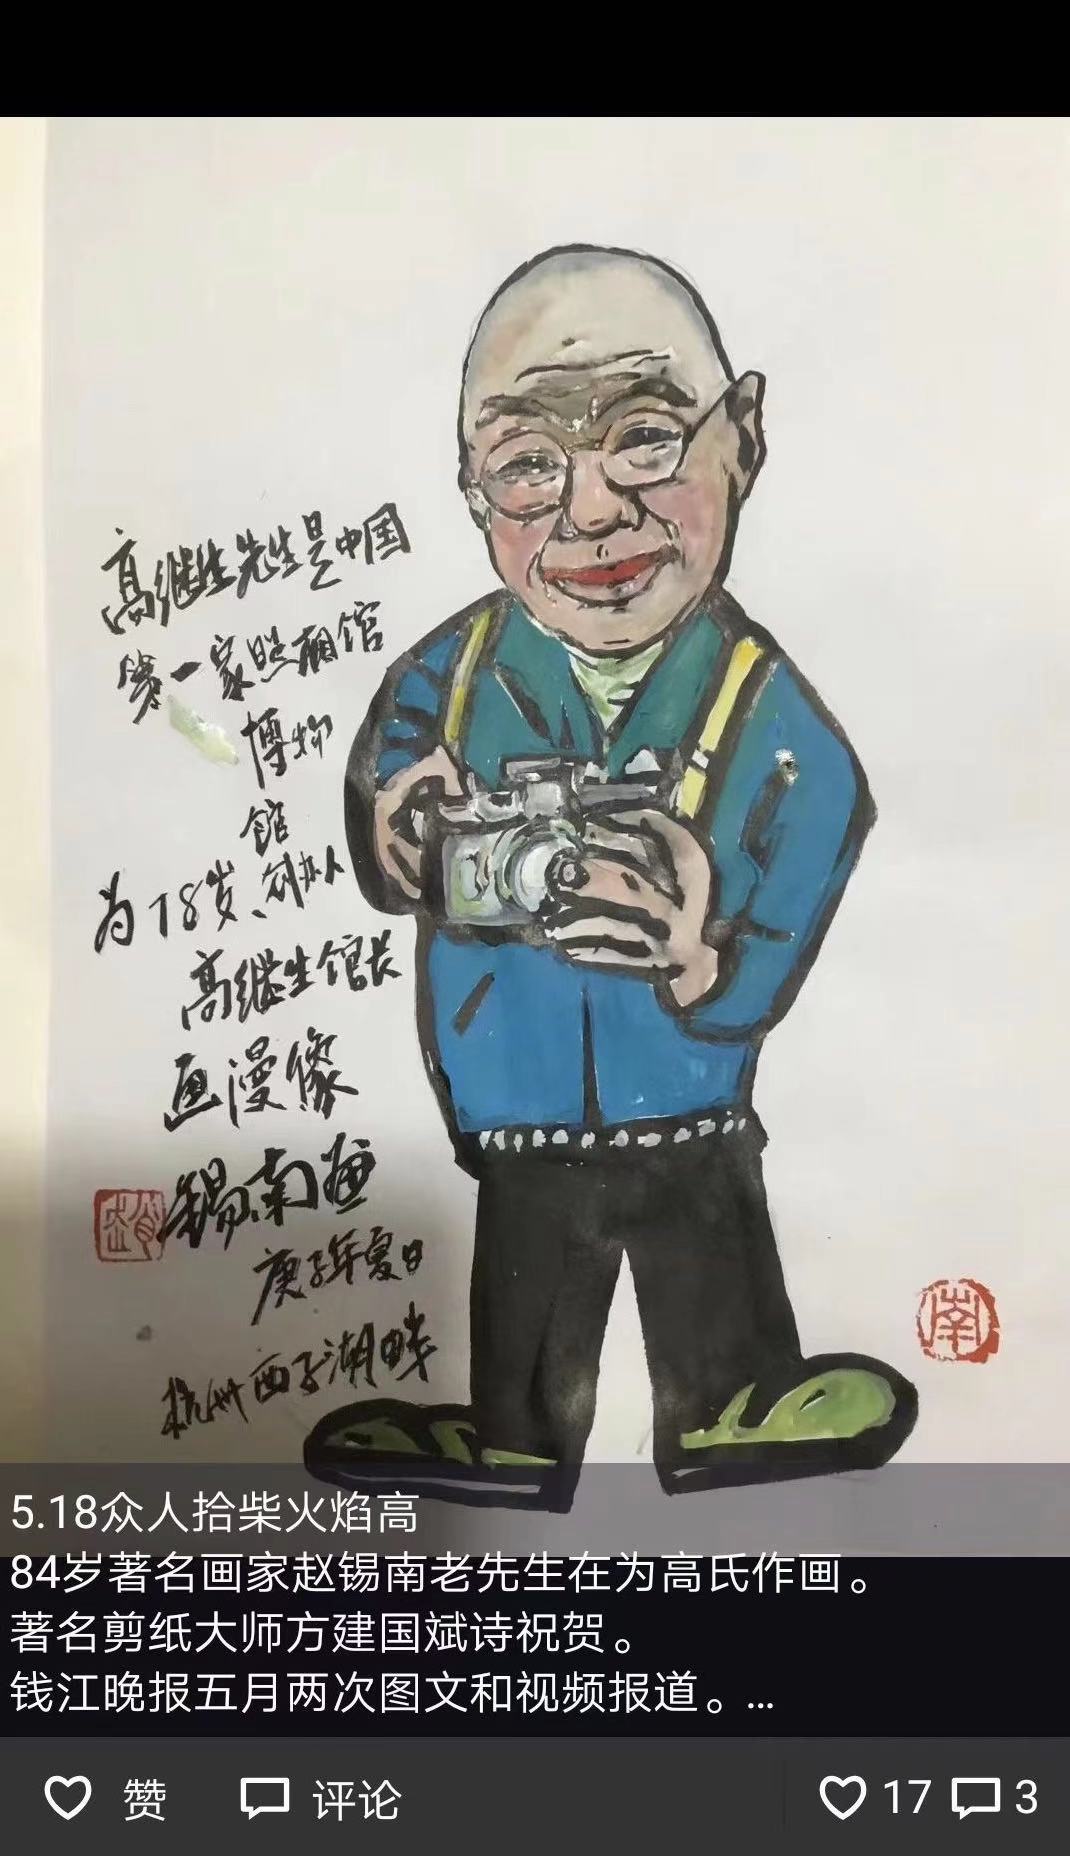 高继生先生是中国
第一家照相馆
博物
馆
为78岁、创办人
高继生馆长
画漫像
锡南画
庚子年夏日
杭州西子湖畔
南
5.18众人拾柴火焰高
84岁著名画家赵锡南老先生在为高氏作画。
著名剪纸大师方建国斌诗祝贺。
钱江晚报五月两次图文和视频报道。...
赞
评论
17
3